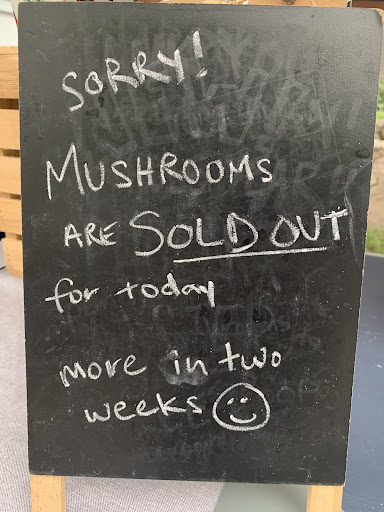 SORRY!
MUSHROOMS
ARE SOLD OUT
for today
more in two
weeks